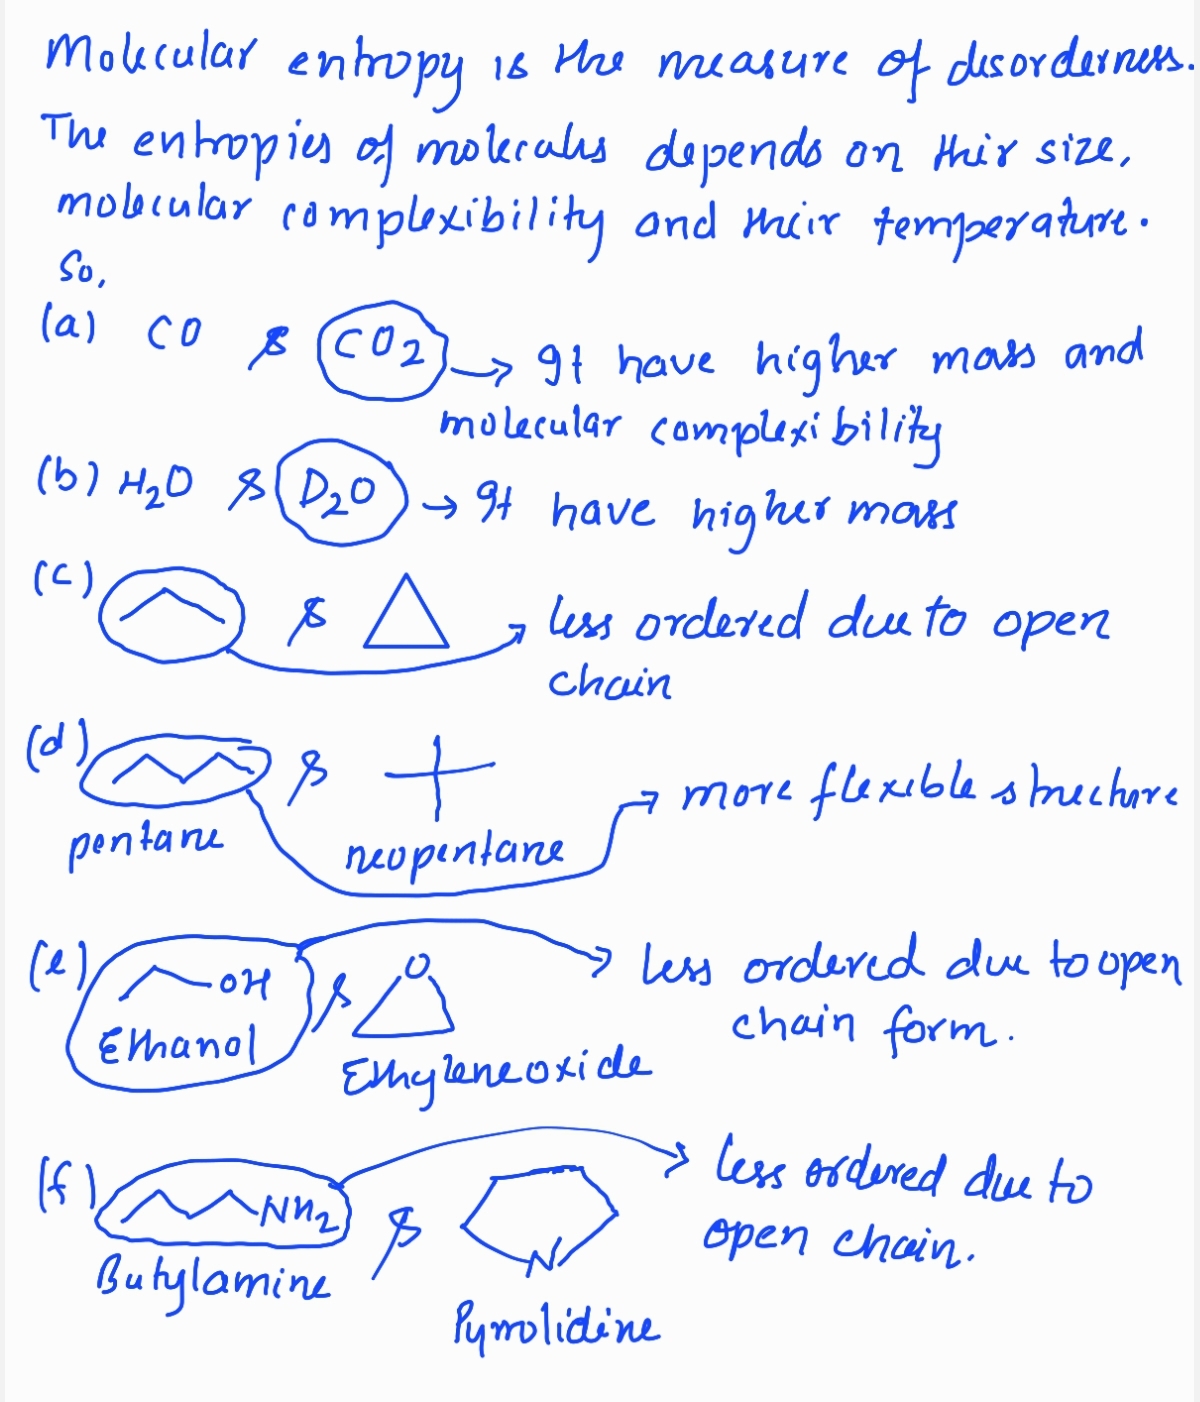 Molecular entropy is the measure of disorderness.
The entropies of molecules depends on their size,
molecular complexibility and their temperature.
So,
(a) CO & CO2 → It have higher mass and
molecular complexibility
(b) H2O & D2O → It have higher mass
(c) & → less ordered due to open
chain
(d) & → more flexible structure
pentane neopentane
(e) OH & O → less ordered due to open
Ethanol chain form.
Ethyleneoxide
(f) NH2 & N → less ordered due to
open chain.
Butylamine
Pyrrolidine